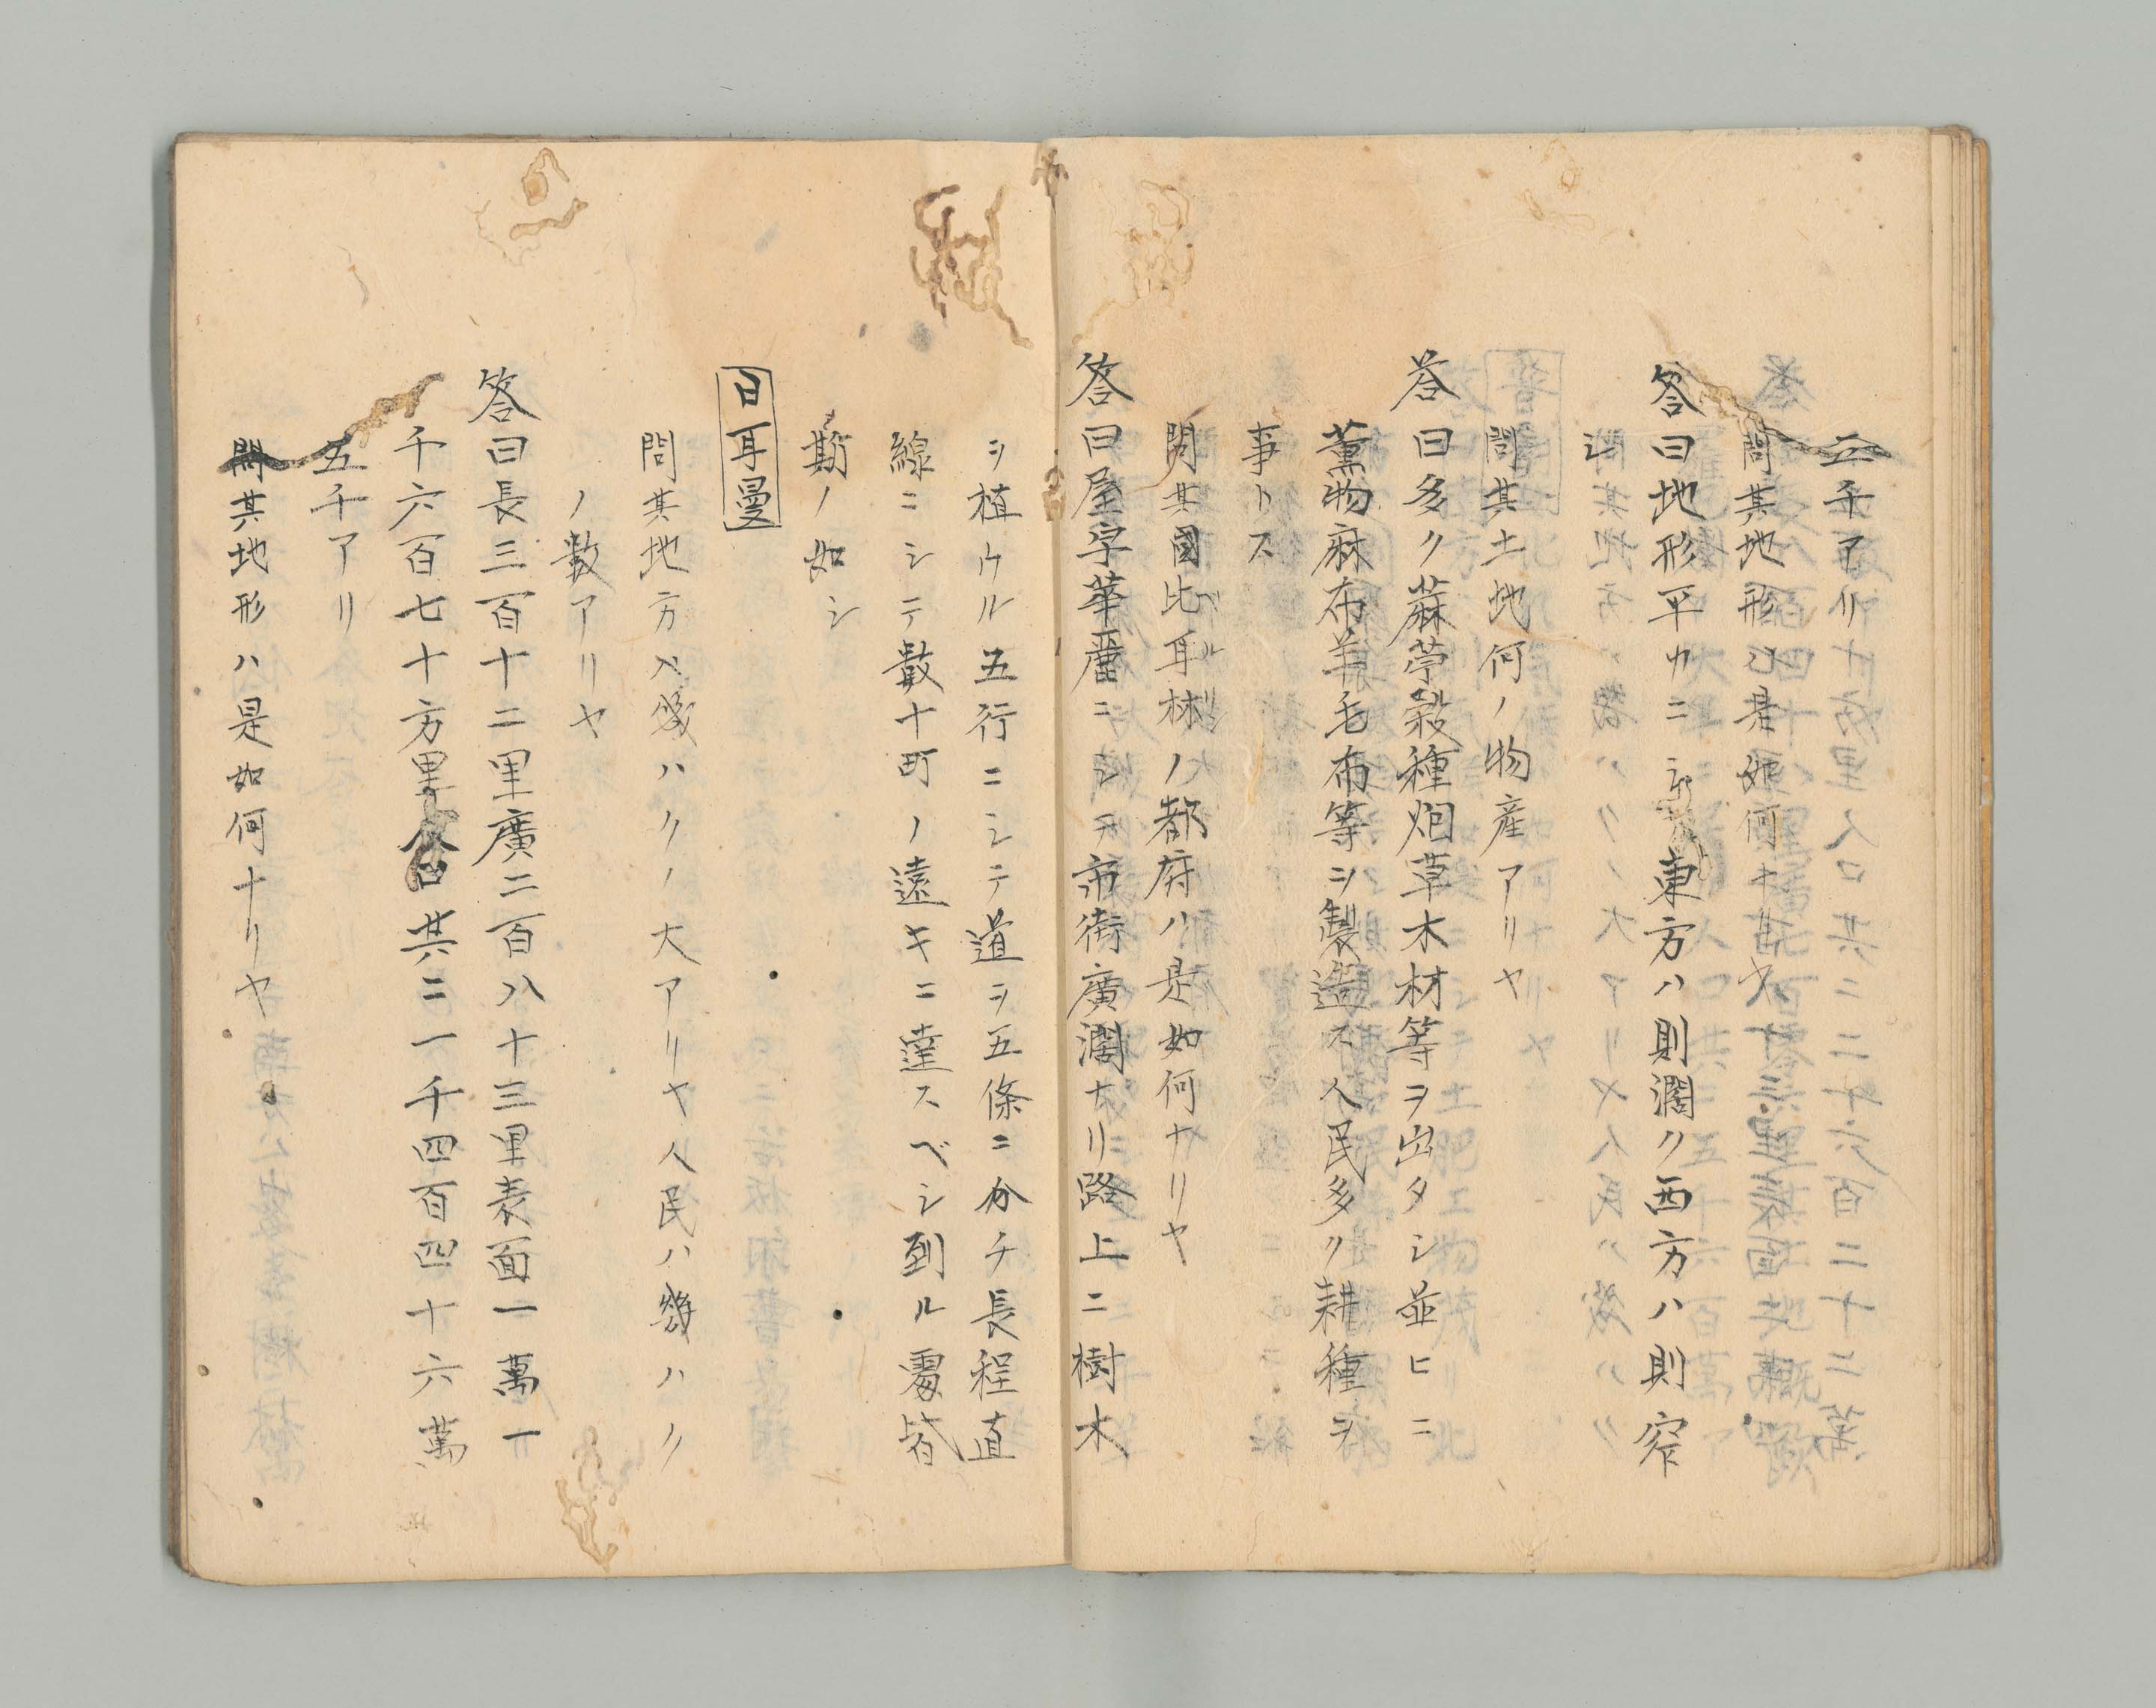 五千アリ
問其地形ハ是如何ナリヤ
答曰地形平カニ 東方ハ則濶ク西方ハ則窄
シ
問其土地何ノ物産アリヤ
答曰多ク蔴苧穀種烟草木材等ヲ出タシ並ヒニ
薫物麻布羊毛布等ヲ製造ス人民多ク耕種ヲ
事トス
問其國比耳林ノ都府ハ是如何ナリヤ
ベルリン
答曰屋宇華麗ニシテ市街廣濶ナリ路上ニ樹木
ヲ植ウル五行ニシテ道ヲ五條ニ分チ長程直
線ニシテ數十町ノ遠キニ達スベシ到ル處皆
斯ノ如シ
日耳曼
問其地方ハ幾ハクノ大アリヤ人民ハ幾ハク
ノ數アリヤ
答曰長三百十二里廣二百八十三里表面一萬一
千六百七十方里人口共ニ一千四百四十六萬
五千アリ
問其地形ハ是如何ナリヤ